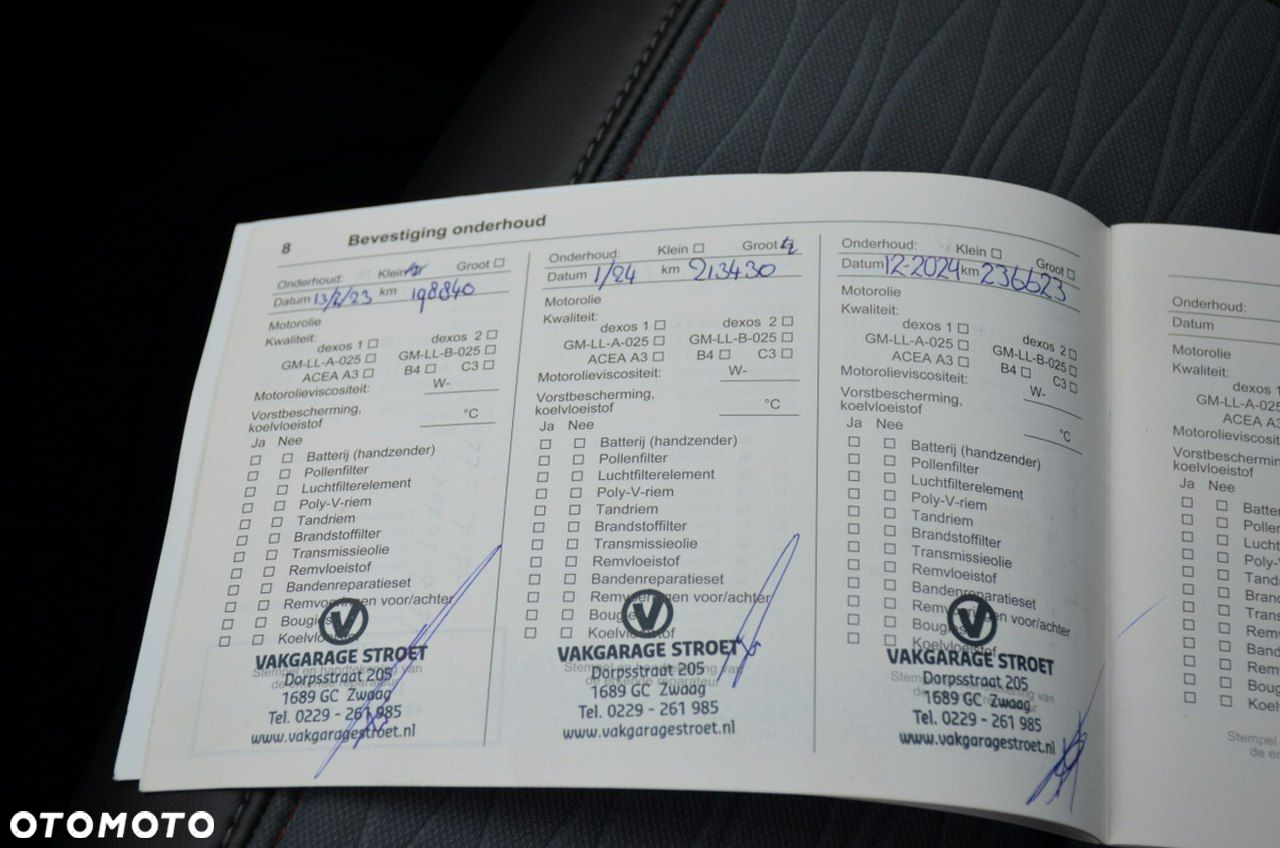 8 Bevestiging onderhoud
Onderhoud: Klein Groot
Datum 13/2/23 km 198840
Motorolie
Kwaliteit:
dexos 1 dexos 2
GM-LL-A-025 GM-LL-B-025
ACEA A3 B4 C3
Motorolieviscositeit: W-
Vorstbescherming,
koelvloeistof °C
Ja Nee
Batterij (handzender)
Pollenfilter
Luchtfilterelement
Poly-V-riem
Tandriem
Brandstoffilter
Transmissieolie
Remvloeistof
Bandenreparatieset
Remvoeringen voor/achter
Bougies
Koelvloeistof
Stempel en handtekening van
de erkende reparateur
V
VAKGARAGE STROET
Dorpsstraat 205
1689 GC Zwaag
Tel. 0229 - 261 985
www.vakgaragestroet.nl
Onderhoud: Klein Groot
Datum 1/24 km 213430
Motorolie
Kwaliteit:
dexos 1 dexos 2
GM-LL-A-025 GM-LL-B-025
ACEA A3 B4 C3
Motorolieviscositeit: W-
Vorstbescherming,
koelvloeistof °C
Ja Nee
Batterij (handzender)
Pollenfilter
Luchtfilterelement
Poly-V-riem
Tandriem
Brandstoffilter
Transmissieolie
Remvloeistof
Bandenreparatieset
Remvoeringen voor/achter
Bougies
Koelvloeistof
Stempel en handtekening van
de erkende reparateur
V
VAKGARAGE STROET
Dorpsstraat 205
1689 GC Zwaag
Tel. 0229 - 261 985
www.vakgaragestroet.nl
Onderhoud: Klein Groot
Datum 12-2024 km 236623
Motorolie
Kwaliteit:
dexos 1 dexos 2
GM-LL-A-025 GM-LL-B-025
ACEA A3 B4 C3
Motorolieviscositeit: W-
Vorstbescherming,
koelvloeistof °C
Ja Nee
Batterij (handzender)
Pollenfilter
Luchtfilterelement
Poly-V-riem
Tandriem
Brandstoffilter
Transmissieolie
Remvloeistof
Bandenreparatieset
Remvoeringen voor/achter
Bougies
Koelvloeistof
Stempel en handtekening van
de erkende reparateur
V
VAKGARAGE STROET
Dorpsstraat 205
1689 GC Zwaag
Tel. 0229 - 261 985
www.vakgaragestroet.nl
Onderhoud:
Datum
Motorolie
Kwaliteit:
dexos 1
GM-LL-A-025
ACEA A3
Motorolieviscositeit
Vorstbescherming
koelvloeistof
Ja Nee
Batter
Pollen
Lucht
Poly-V
Tand
Bran
Trans
Rem
Band
Rem
Boug
Koel
Stempel
de er
OTOMOTO